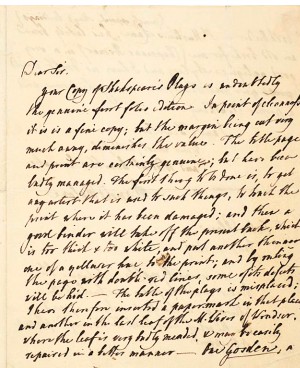 Dear Sir.
your Copy of Shakespeare's Plays is undoubtedly
the genuine first folio Edition. In point of cleanness
it is is a fine copy; but the margin being cut very
much away, diminishes the value. The title page
and print are certainly genuine; but have been
badly managed. The first thing to be done is, to get
any artist that is used to such things, to
print where it has been damaged; and then a
good binder will take off the present back, which
is too thick & too white, and put another thinner
one of a yellower hue to the print; and by ruling
the page with double red lines some of its defects
will be hid. — The table of the plays is misplaced;
I have therefore inserted a paper mark in that place
and another in the last leaf of the M. Wives of Windsor,
where the leaf is very badly mended, & may be easily
repaired in a better manner — One Gosden, a